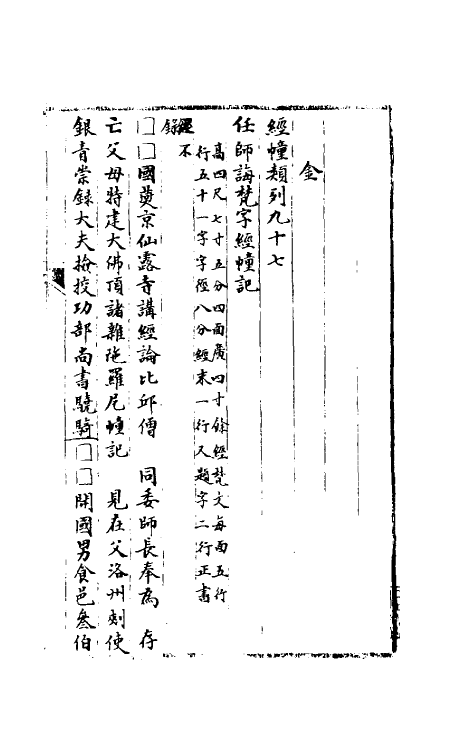 金
經幢類列九十七
任師誨梵字經幢記
高四尺七寸五分四面廣四寸餘經梵文每面五行
行五十一字字徑八分經末一行又題字二行正書
經不
錄
□□國燕京仙露寺講經論比邱僧 同委師長奉為 存
亡父母特建大佛頂諸雜陁羅尼幢記 見在父洛州刺使
銀青崇錄大夫撿挍功部尚書驍騎□□開國男食邑叁伯